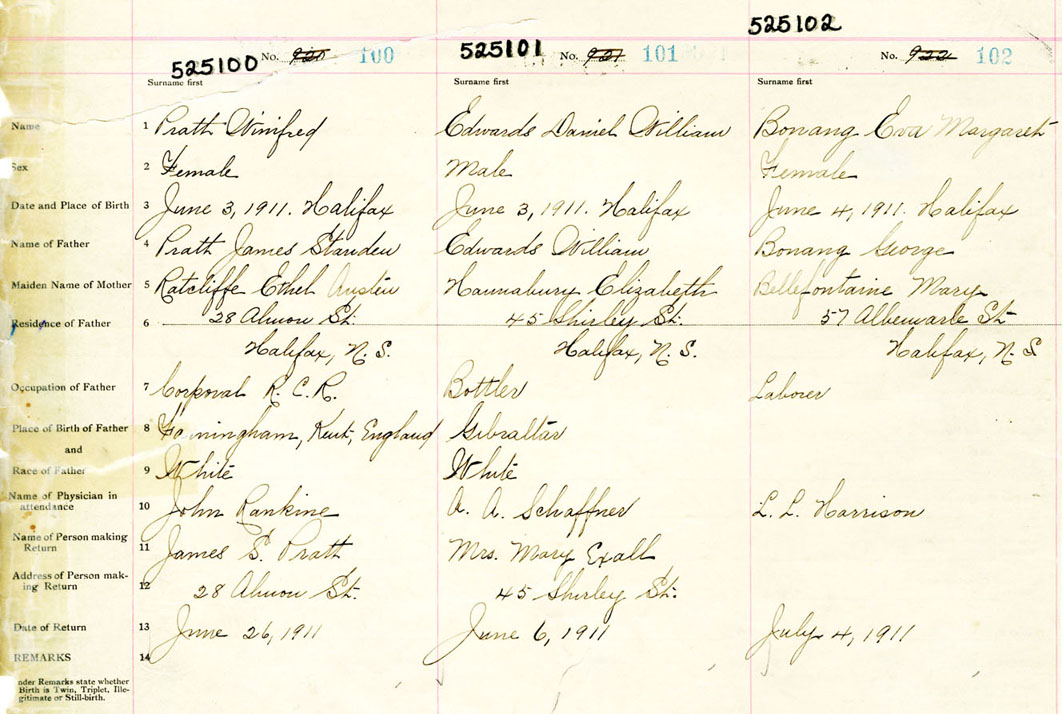 525100 No. 920 100 525101 No. 921 101 525102 No. 922 102
Surname first Surname first Surname first
Name 1 Pratt Winifred Edwards Daniel William Bonang Eva Margaret
Sex 2 Female Male Female
Date and Place of Birth 3 June 3, 1911. Halifax June 3, 1911. Halifax June 4, 1911. Halifax
Name of Father 4 Pratt James Standen Edwards William Bonang George
Maiden Name of Mother 5 Ratcliffe Ethel Austen Hannabury Elizabeth Bellefontaine Mary
Residence of Father 6 28 Almon St. 45 Shirley St. 57 Albemarle St
Halifax, N. S. Halifax, N. S. Halifax, N. S
Occupation of Father 7 Corporal R. C. R. Bottler Laborer
Place of Birth of Father 8 Kent, England Gibraltar
and
Race of Father 9 White White
Name of Physician in
attendance 10 John Rankine A. A. Schaffner L. L. Harrison
Name of Person making
Return 11 James S. Pratt Mrs. Mary Exall
Address of Person mak-
ing Return 12 28 Almon St. 45 Shirley St.
Date of Return 13 June 26, 1911 June 6, 1911 July 4, 1911
REMARKS 14
nder Remarks state whether
Birth is Twin, Triplet, Ille-
gitimate or Still-birth.